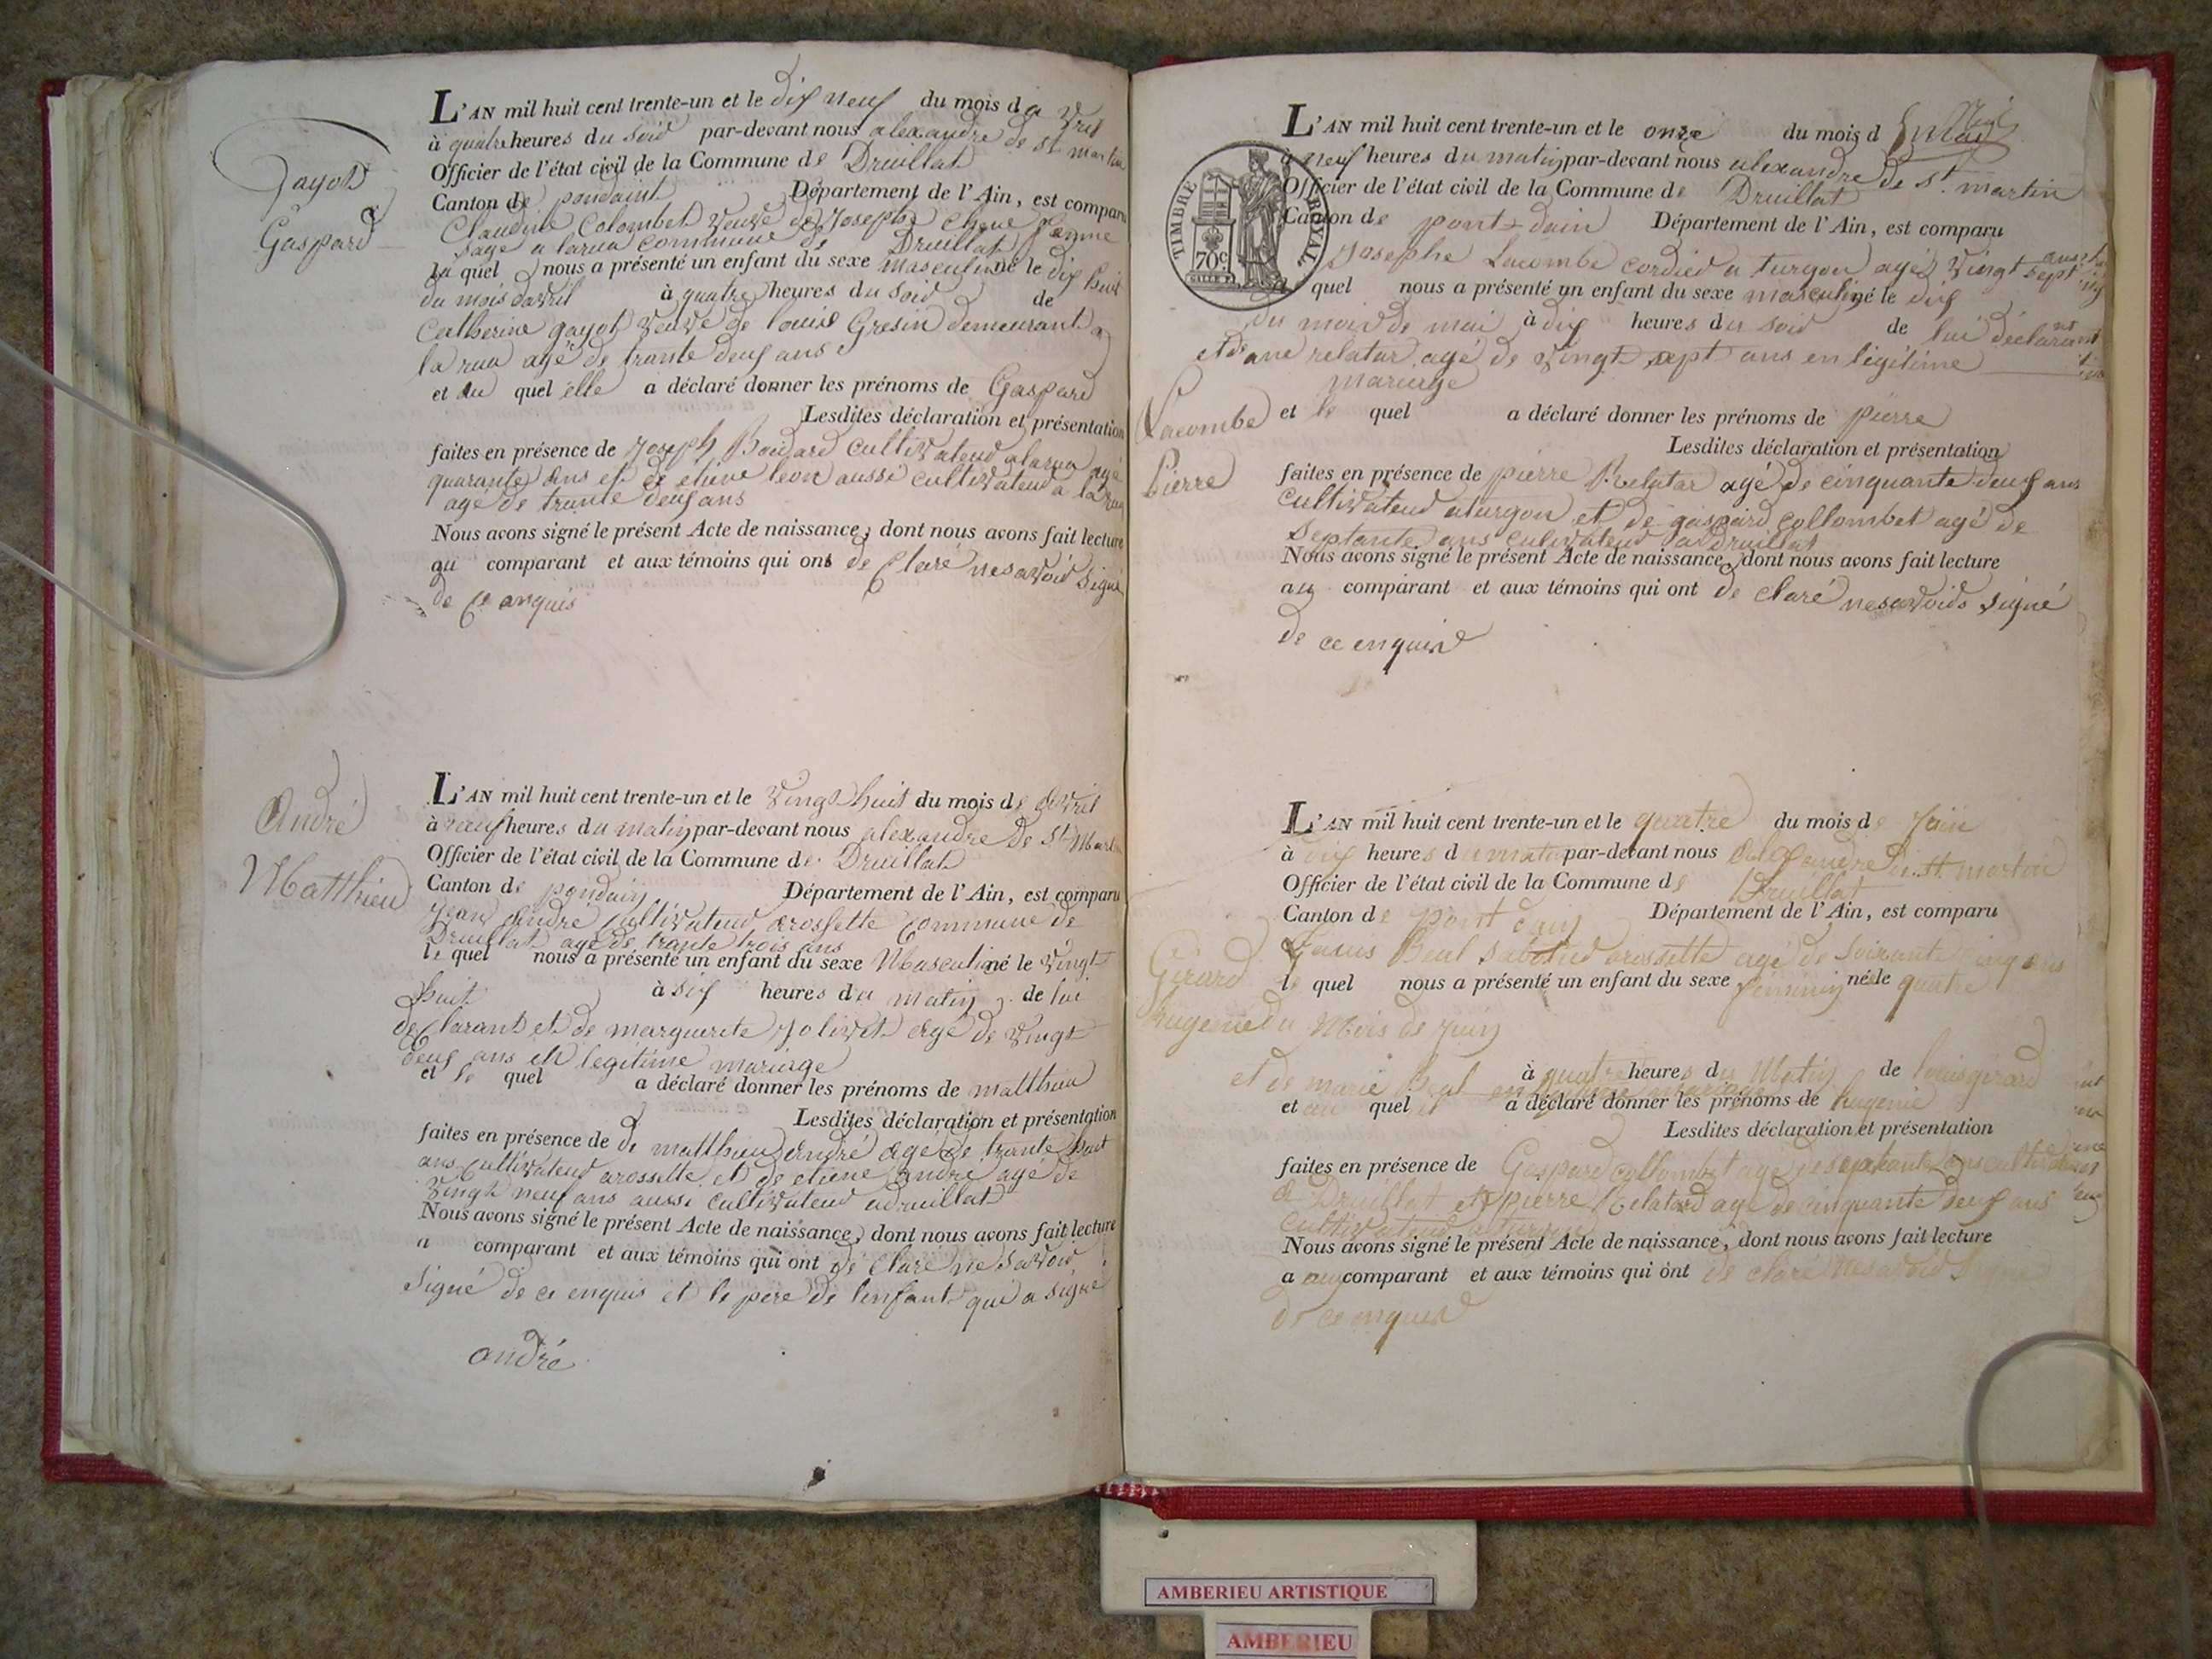 Gayot
Gaspard
L'AN mil huit cent trente-un et le dix neuf du mois d avril
à quatre heures du soir par-devant nous alexandre de st martin
Officier de l'état civil de la Commune de Druillat
Canton de pondaint Département de l'Ain, est comparu
Claudine Colombet veuve de Joseph femme
sage a larua commune de Druillat
la quel nous a présenté un enfant du sexe masculin né le dix huit
du mois davril à quatre heures du soir de
Catherine gayot veuve de louis Gresin demeurant a
la rua agé de trante deux ans
et du quel elle a déclaré donner les prénoms de Gaspard
Lesdites déclaration et présentation
faites en présence de Joseph cultivateur alarua agé
quarante ans et de etiene leon aussi cultivateur a la rua
agé de trante deux ans
Nous avons signé le présent Acte de naissance, dont nous avons fait lecture
au comparant et aux témoins qui ont de claré nesavoir signé
de ce anquis
André
Matthieu
L'AN mil huit cent trente-un et le vingt huit du mois de avril
à neuf heures du matin par-devant nous alexandre de St Martin
Officier de l'état civil de la Commune de Druillat
Canton de pondain Département de l'Ain, est comparu
Jean andré cultivateur arossette commune de
Druillat agé de trante trois ans
le quel nous a présenté un enfant du sexe Masculin né le vingt
huit à six heures du matin de lui
declarant et de marguerite Jolivet agé de vingt
deux ans en legitime mariage
et le quel a déclaré donner les prénoms de matthieu
Lesdites déclaration et présentation
faites en présence de de matthieu andré agé de trante huit
ans cultivateur arossette et de etiene andré agé de
vingt neuf ans aussi cultivateur adruillat
Nous avons signé le présent Acte de naissance, dont nous avons fait lecture
a comparant et aux témoins qui ont de claré ne savoir
signé de ce enquis et le père de lenfant qui a signé
andré
TIMBRE ROYAL
70c
L'AN mil huit cent trente-un et le onze du mois d Mai
à neuf heures du matin par-devant nous alexandre de st martin
Officier de l'état civil de la Commune de Druillat
Canton de pont dain Département de l'Ain, est comparu
Josephe Lacombe cordier a turgon agé vingt sept ans
quel nous a présenté un enfant du sexe masculin né le dix
du mois de mai à dix heures du soir de lui déclarant
et de ane relatar agé de vingt sept ans en légitime
mariage
Lacombe
Pierre
et le quel a déclaré donner les prénoms de pierre
Lesdites déclaration et présentation
faites en présence de pierre Relatar agé de cinquante deux ans
cultivateur aturgon et de gaspard collombet agé de
Septante ans culivateur a Druillat
Nous avons signé le présent Acte de naissance, dont nous avons fait lecture
au comparant et aux témoins qui ont de claré nesavoir signé
de ce enquis
L'AN mil huit cent trente-un et le quatre du mois de Juin
à dix heures du matin par-devant nous alexandre de st martin
Officier de l'état civil de la Commune de Druillat
Canton de pont dain Département de l'Ain, est comparu
arossette agé de soixante cinq ans
Girard
hugenie
le quel nous a présenté un enfant du sexe feminin né le quatre
du Mois de Juin
à quatre heures du Matin de louis girard
et de marie
et au quel il a déclaré donner les prénoms de hugenie
Lesdites déclaration et présentation
faites en présence de Gaspard collombet agé de septante ans cultivateur
a Druillat et pierre Relatard agé de cinquante deux ans
cultivateur a turgon
Nous avons signé le présent Acte de naissance, dont nous avons fait lecture
a au comparant et aux témoins qui ont de claré nesavoir
de ce enquis
AMBERIEU ARTISTIQUE
AMBERIEU